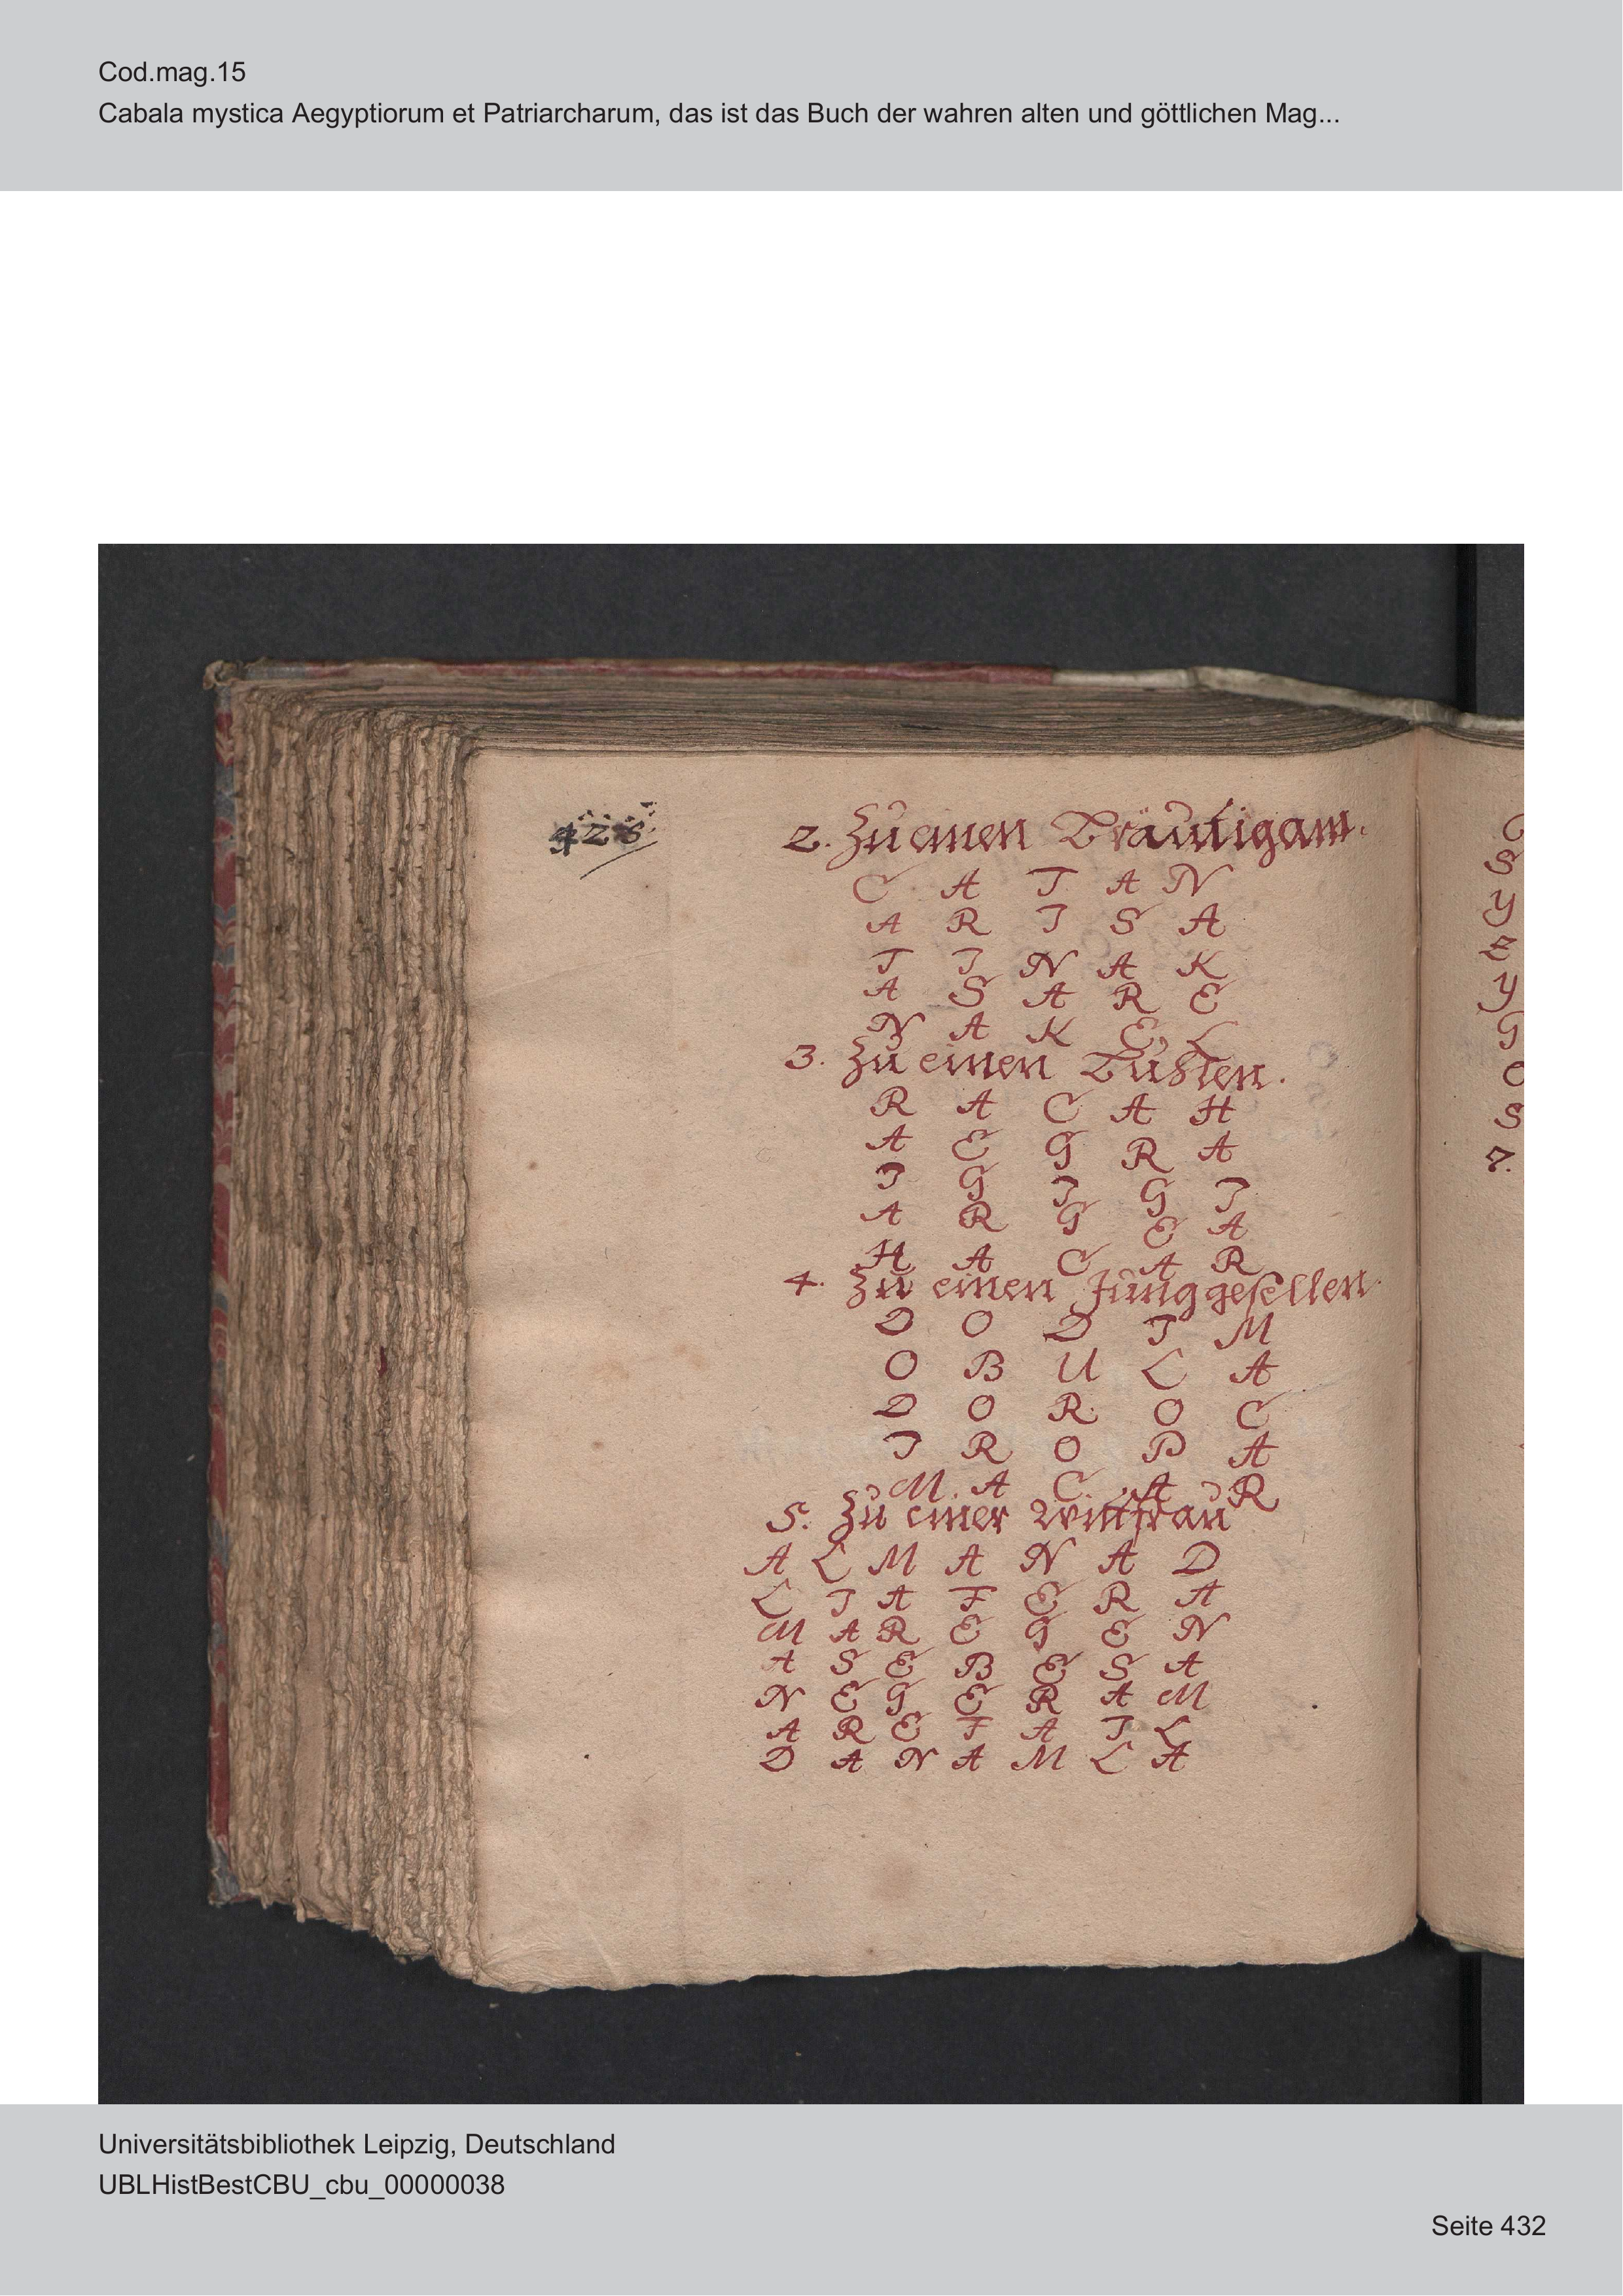 Cod.mag.15
Cabala mystica Aegyptiorum et Patriarcharum, das ist das Buch der wahren alten und göttlichen Mag...
428
2. Zu einen Bräutigam.
C A T A N
A R I S A
T I N A K
A S A R E
N A K E L
3. Zu einen
R A C A H
A E G R A
I G I G I
A R G E A
H A C A R
4. Zu einen Junggesellen.
D O D I M
O B U L A
D O R O C
I R O P A
M. A C. A R
5. Zu einer Wittfrau
A L M A N A D
L I A F E R A
M A R E G E N
A S E B E S A
N E G E R A M
A R E F A I L
D A N A M L A
S
Y
E
Y
G
S
7.
Universitätsbibliothek Leipzig, Deutschland
UBLHistBestCBU_cbu_00000038
Seite 432